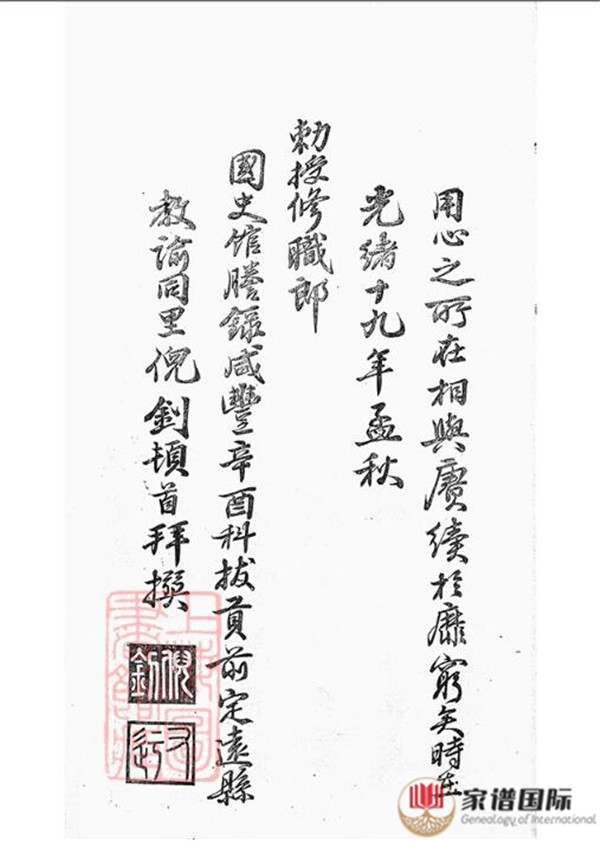 用心之所在相與賡續於靡窮矣時在
光緒十九年孟秋
勅授修職郎
國史館謄錄咸豐辛酉科拔貢前定遠縣
教諭同里倪釗頓首拜撰
倪釗
家谱国际
Genealogy of International